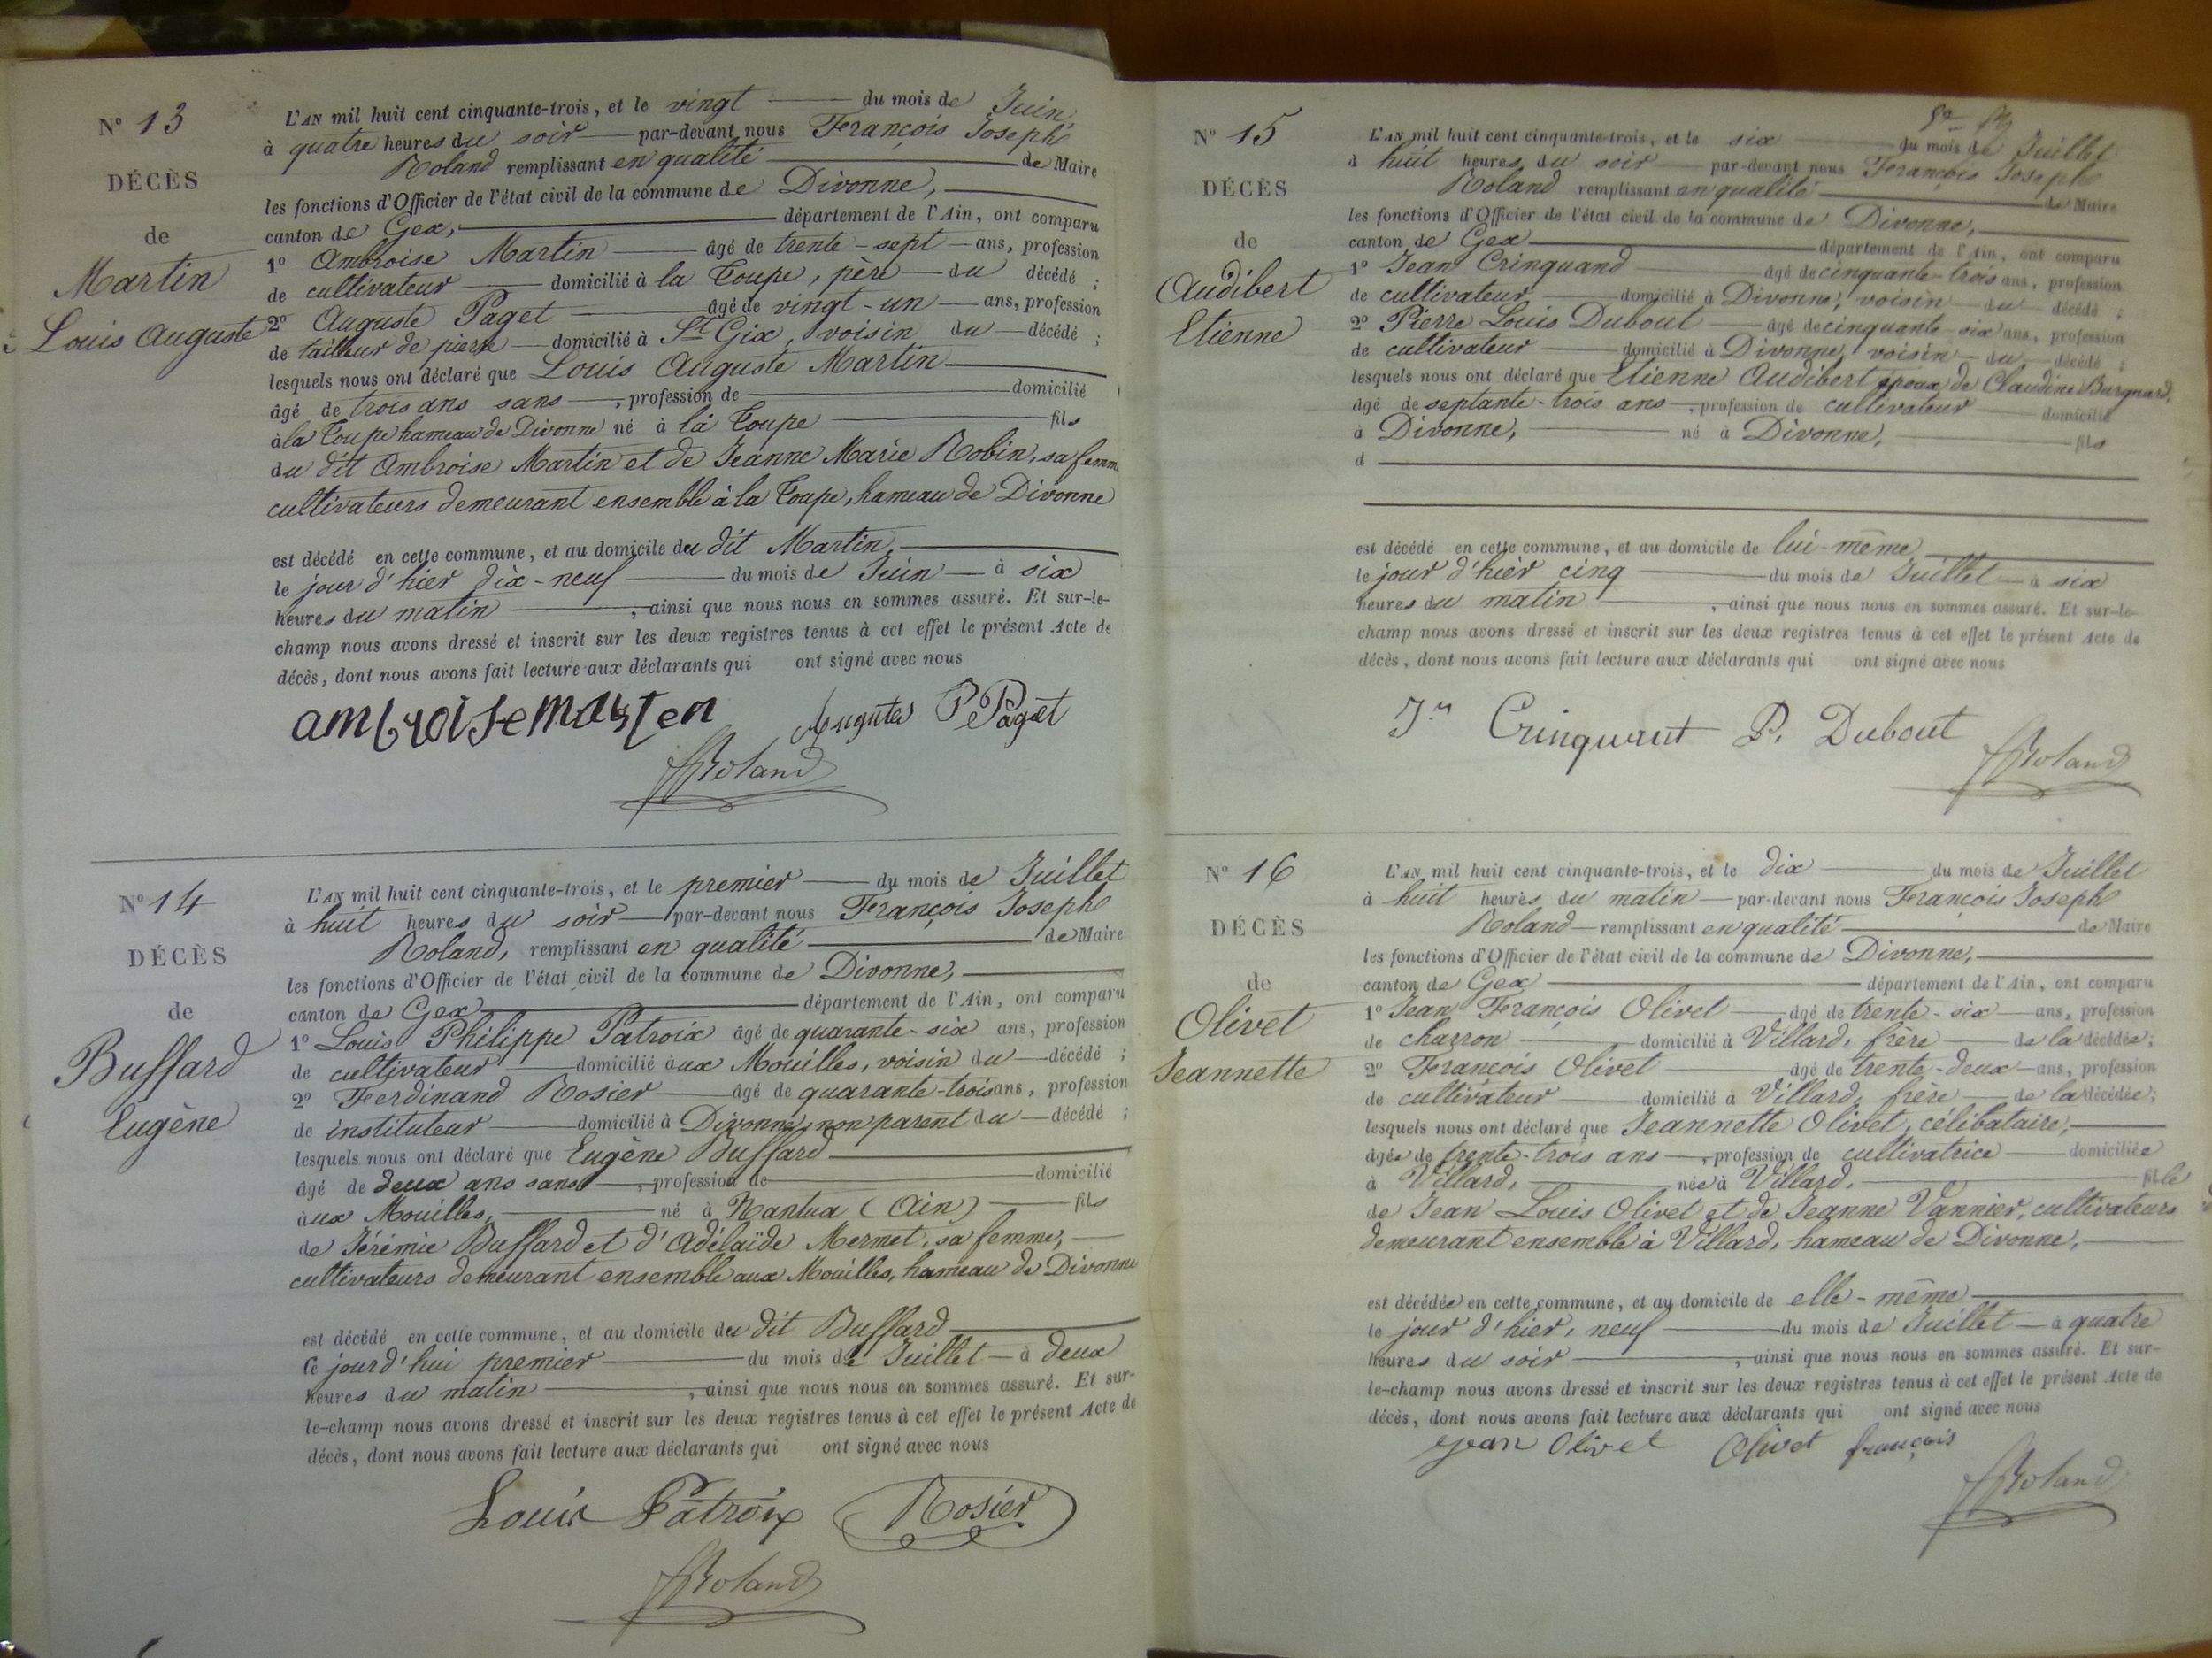 N° 13
DÉCÈS
de
Martin
Louis Auguste
L'AN mil huit cent cinquante-trois, et le vingt du mois de Juin
à quatre heures du soir par-devant nous François Joseph
Roland remplissant en qualité de Maire
les fonctions d'Officier de l'état civil de la commune de Divonne,
canton de Gex, département de l'Ain, ont comparu
1° Ambroise Martin âgé de trente-sept ans, profession
de cultivateur domicilié à la Coupe, père du décédé ;
2° Auguste Paget âgé de vingt-un ans, profession
de tailleur de pierre domicilié à St Gix, voisin du décédé ;
lesquels nous ont déclaré que Louis Auguste Martin
âgé de trois ans sans, profession de domicilié
à la Coupe hameau de Divonne né à la Coupe fils
du dit Ambroise Martin et de Jeanne Marie Robin, sa femme
cultivateurs demeurant ensemble à la Coupe, hameau de Divonne
est décédé en cette commune, et au domicile du dit Martin,
le jour d'hier dix-neuf du mois de Juin à six
heures du matin, ainsi que nous nous en sommes assuré. Et sur-le-
champ nous avons dressé et inscrit sur les deux registres tenus à cet effet le présent Acte de
décès, dont nous avons fait lecture aux déclarants qui ont signé avec nous
ambroise marten Augute P Paget
FRoland
N° 14
DÉCÈS
de
Buffard
Eugène
L'AN mil huit cent cinquante-trois, et le premier du mois de Juillet
à huit heures du soir par-devant nous François Joseph
Roland, remplissant en qualité de Maire
les fonctions d'Officier de l'état civil de la commune de Divonne,
canton de Gex département de l'Ain, ont comparu
1° Louis Philippe Patroix âgé de quarante-six ans, profession
de cultivateur domicilié aux Mouilles, voisin du décédé ;
2° Ferdinand Rosier âgé de quarante-trois ans, profession
de instituteur domicilié à Divonne, non parent du décédé ;
lesquels nous ont déclaré que Eugène Buffard
âgé de deux ans sans, profession de domicilié
aux Mouilles, né à Nantua (Ain) fils
de Jérémie Buffard et d'Adélaïde Mermet, sa femme,
cultivateurs demeurant ensemble aux Mouilles, hameau de Divonne
est décédé en cette commune, et au domicile du dit Buffard
Ce jourd'hui premier du mois de Juillet à deux
heures du matin, ainsi que nous nous en sommes assuré. Et sur-
le-champ nous avons dressé et inscrit sur les deux registres tenus à cet effet le présent Acte de
décès, dont nous avons fait lecture aux déclarants qui ont signé avec nous
Louis Patroix Rosier
FRoland
N° 15
DÉCÈS
de
Audibert
Etienne
L'AN mil huit cent cinquante-trois, et le six du mois de Juillet
à huit heures du soir par-devant nous François Joseph
Roland remplissant en qualité de Maire
les fonctions d'Officier de l'état civil de la commune de Divonne,
canton de Gex département de l'Ain, ont comparu
1° Jean Crinquand âgé de cinquante-trois ans, profession
de cultivateur domicilié à Divonne, voisin du décédé ;
2° Pierre Louis Dubout âgé de cinquante-six ans, profession
de cultivateur domicilié à Divonne, voisin du décédé ;
lesquels nous ont déclaré que Etienne Audibert époux de Claudine Burgnard,
âgé de septante-trois ans, profession de cultivateur domicilié
à Divonne, né à Divonne, fils
d
est décédé en cette commune, et au domicile de lui-même
le jour d'hier cinq du mois de Juillet à six
heures du matin, ainsi que nous nous en sommes assuré. Et sur-le-
champ nous avons dressé et inscrit sur les deux registres tenus à cet effet le présent Acte de
décès, dont nous avons fait lecture aux déclarants qui ont signé avec nous
Jn Crinquant P. Dubout
FRoland
N° 16
DÉCÈS
de
Olivet
Jeannette
L'AN mil huit cent cinquante-trois, et le dix du mois de Juillet
à huit heures du matin par-devant nous François Joseph
Roland remplissant en qualité de Maire
les fonctions d'Officier de l'état civil de la commune de Divonne,
canton de Gex département de l'Ain, ont comparu
1° Jean François Olivet âgé de trente-six ans, profession
de charron domicilié à Villard, frère de la décédée ;
2° François Olivet âgé de trente-deux ans, profession
de cultivateur domicilié à Villard, frère de la décédée ;
lesquels nous ont déclaré que Jeannette Olivet, célibataire,
âgée de trente-trois ans, profession de cultivatrice domiciliée
à Villard, née à Villard, fille
de Jean Louis Olivet et de Jeanne Vannier, cultivateurs
demeurant ensemble à Villard, hameau de Divonne,
est décédée en cette commune, et au domicile de elle-même
le jour d'hier, neuf du mois de Juillet à quatre
heures du soir, ainsi que nous nous en sommes assuré. Et sur-
le-champ nous avons dressé et inscrit sur les deux registres tenus à cet effet le présent Acte de
décès, dont nous avons fait lecture aux déclarants qui ont signé avec nous
jean Olivet Olivet françois
FRoland